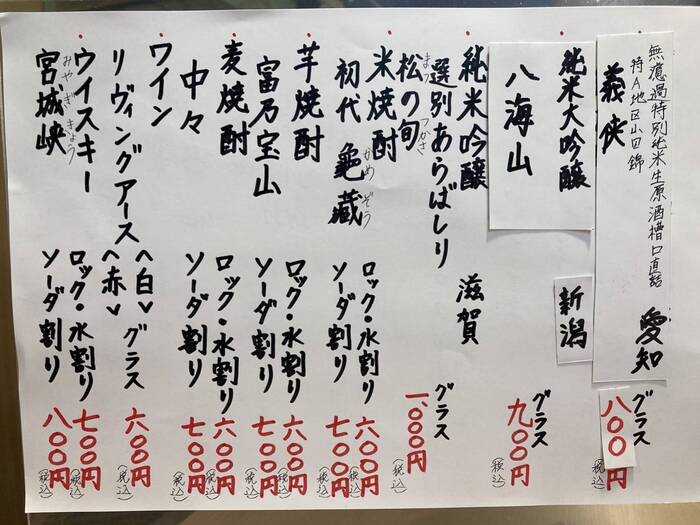 無濾過特別純米生原酒槽口直詰
特A地区山田錦
義侠
愛知
グラス
八〇〇円
(税込)
純米大吟醸
八海山
新潟
グラス
九〇〇円
(税込)
純米吟醸
選別あらばしり
松の旬
まつ つかさ
滋賀
グラス
一、〇〇〇円
(税込)
米焼酎
初代 亀蔵
かめぞう
ロック・水割り
六〇〇円
(税込)
ソーダ割り
七〇〇円
(税込)
芋焼酎
富乃宝山
ロック・水割り
六〇〇円
(税込)
ソーダ割り
七〇〇円
(税込)
麦焼酎
中々
ロック・水割り
六〇〇円
(税込)
ソーダ割り
七〇〇円
(税込)
ワイン
リヴィングアース
<白>
<赤>
グラス
六〇〇円
(税込)
ウイスキー
宮城峡
みやぎきょう
ロック・水割り
七〇〇円
(税込)
ソーダ割り
八〇〇円
(税込)